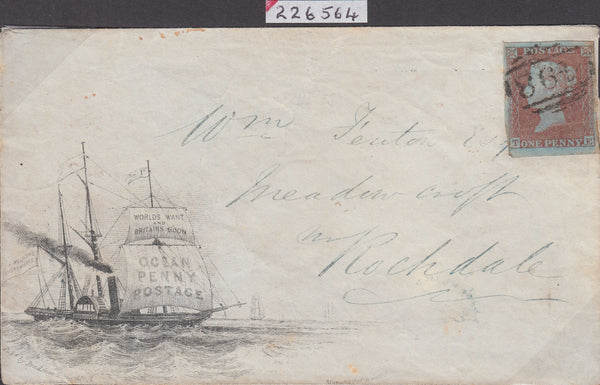 226564
POSTAGE
ONE PENNY
Wm Fenton Esq
Meadow croft
nr
Rochdale
WORLDS WANT
AND
BRITAINS BOON
OCEAN
PENNY
POSTAGE